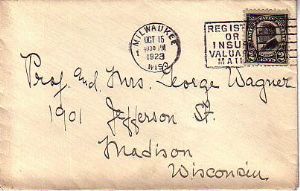 MILWAUKEE
OCT 15
1923
WIS.
REGISTER
OR
INSURE
VALUABLE
MAIL
Prof. and Mrs. George Wagner
1901 Jefferson St.
Madison
Wisconsin.